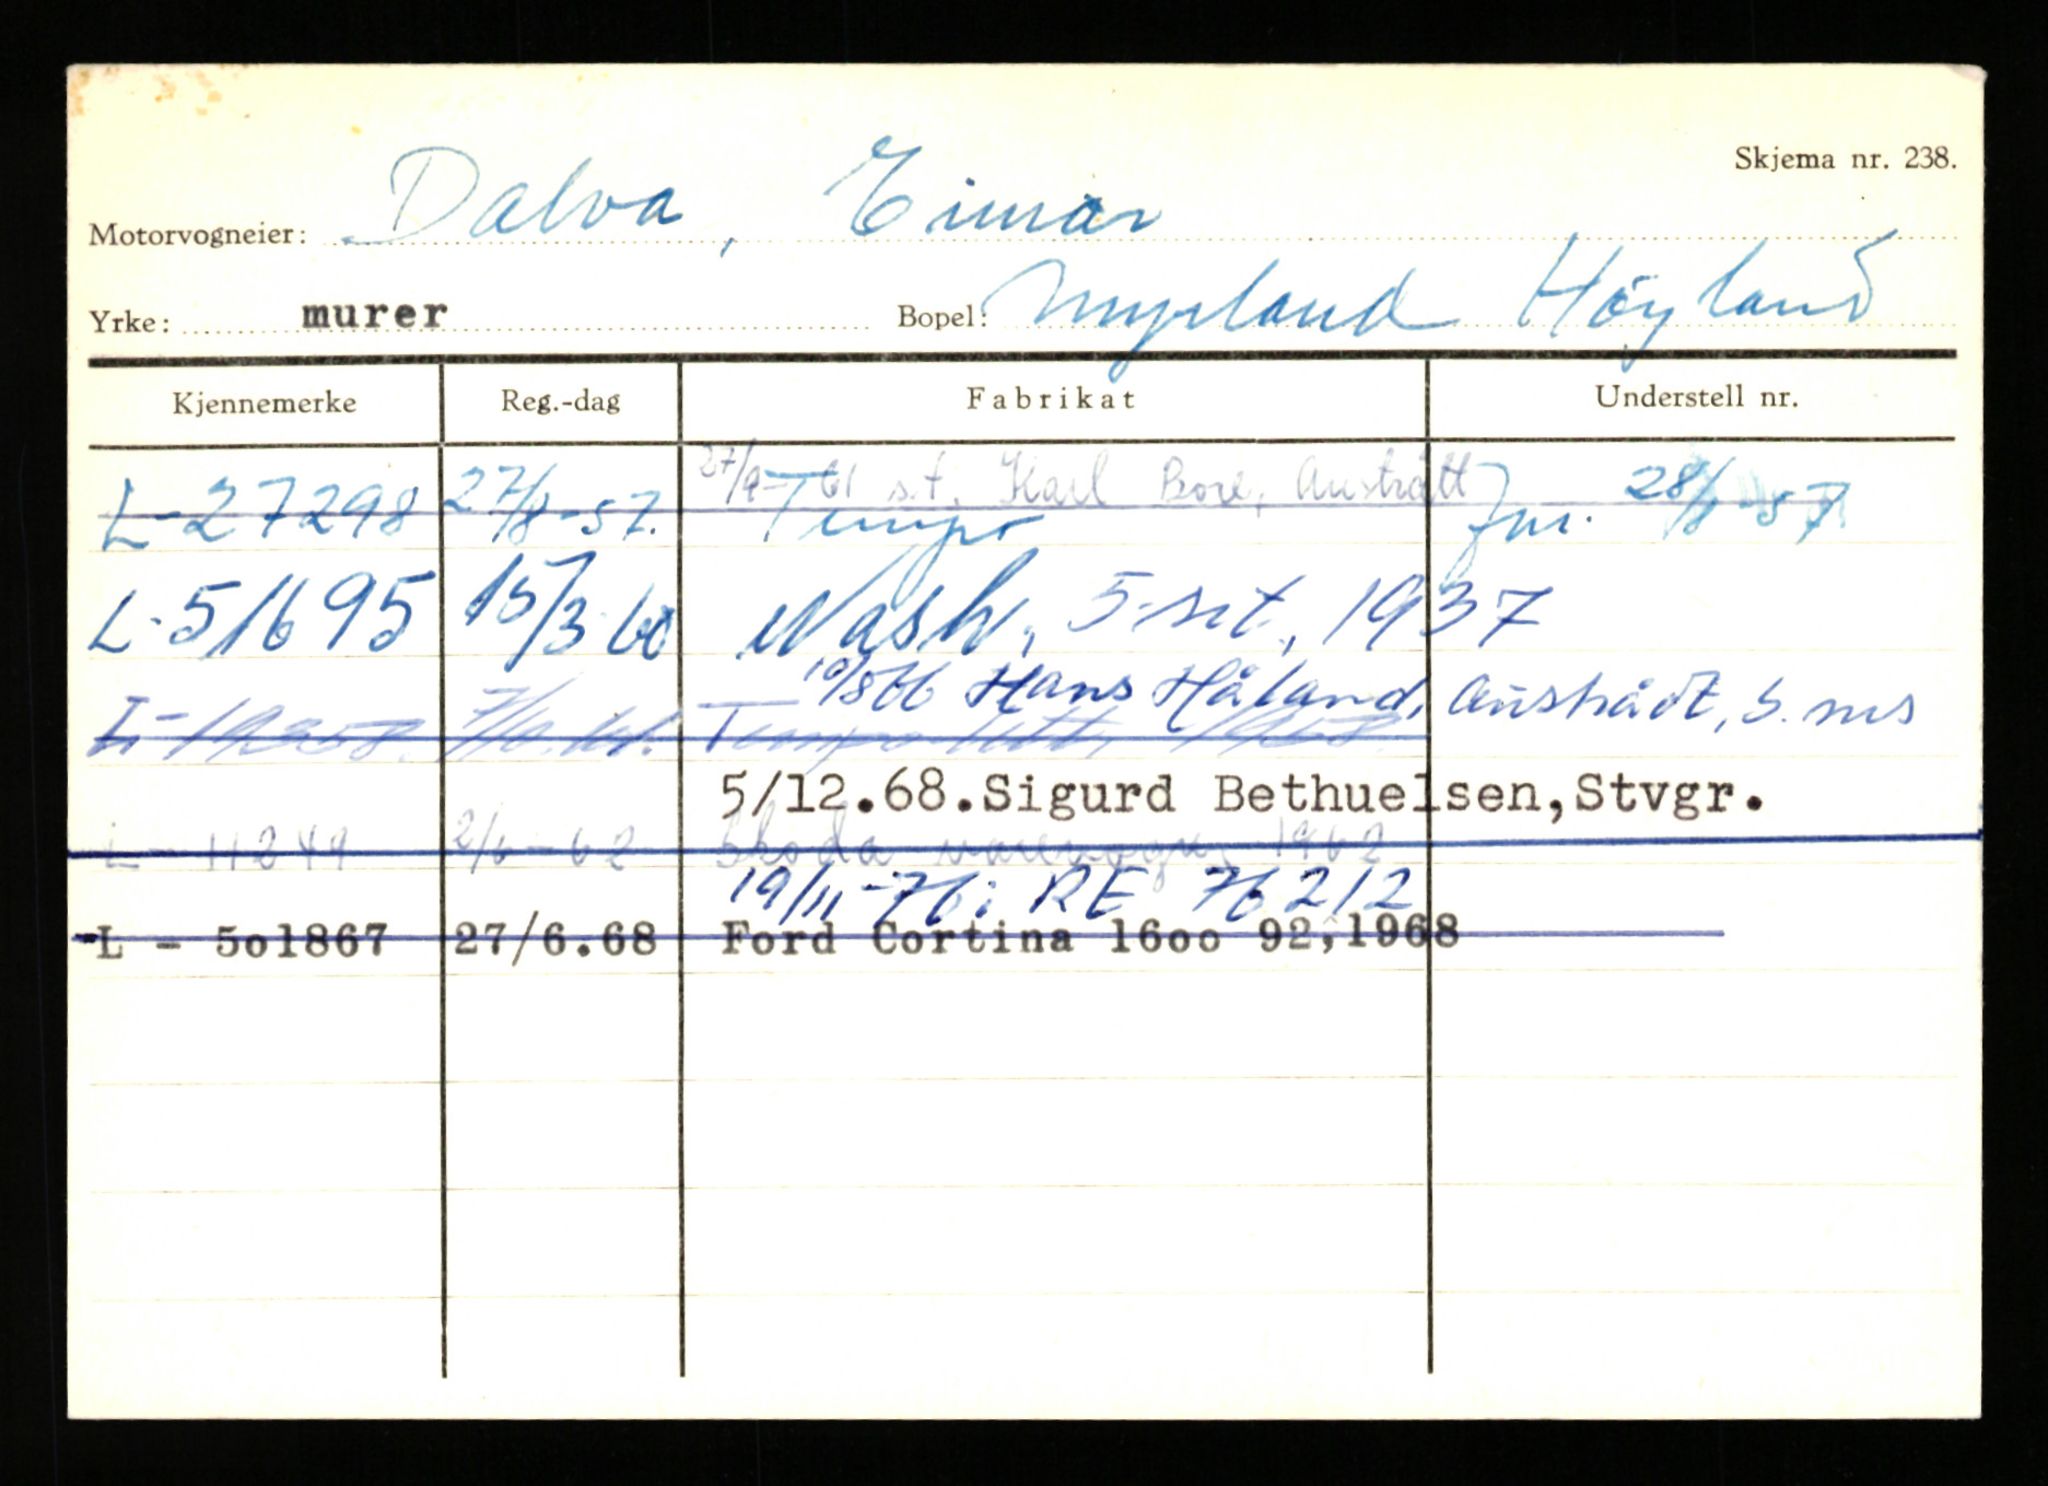 Skjema nr. 238.
Motorvogneier: Dalva, Einar
Yrke: murer Bopel: Høyland
Kjennemerke Reg.-dag Fabrikat Understell nr.
27/9-61 s.t. Karl Bore, Austrått
L-27298 27/8-57. Tempo 28/8-57
L-51695 15/3 60 Nash, 5-set., 1937
10/8 66 Hans Håland, Austrådt, s. ms
7/6.61. Tempo lett,
5/12.68.Sigurd Bethuelsen,Stvgr.
L-11249 2/6-62 Skoda varevogn, 1962
19/11-76: RE 76212
L - 5o1867 27/6.68 Ford Cortina 16oo 92,1968